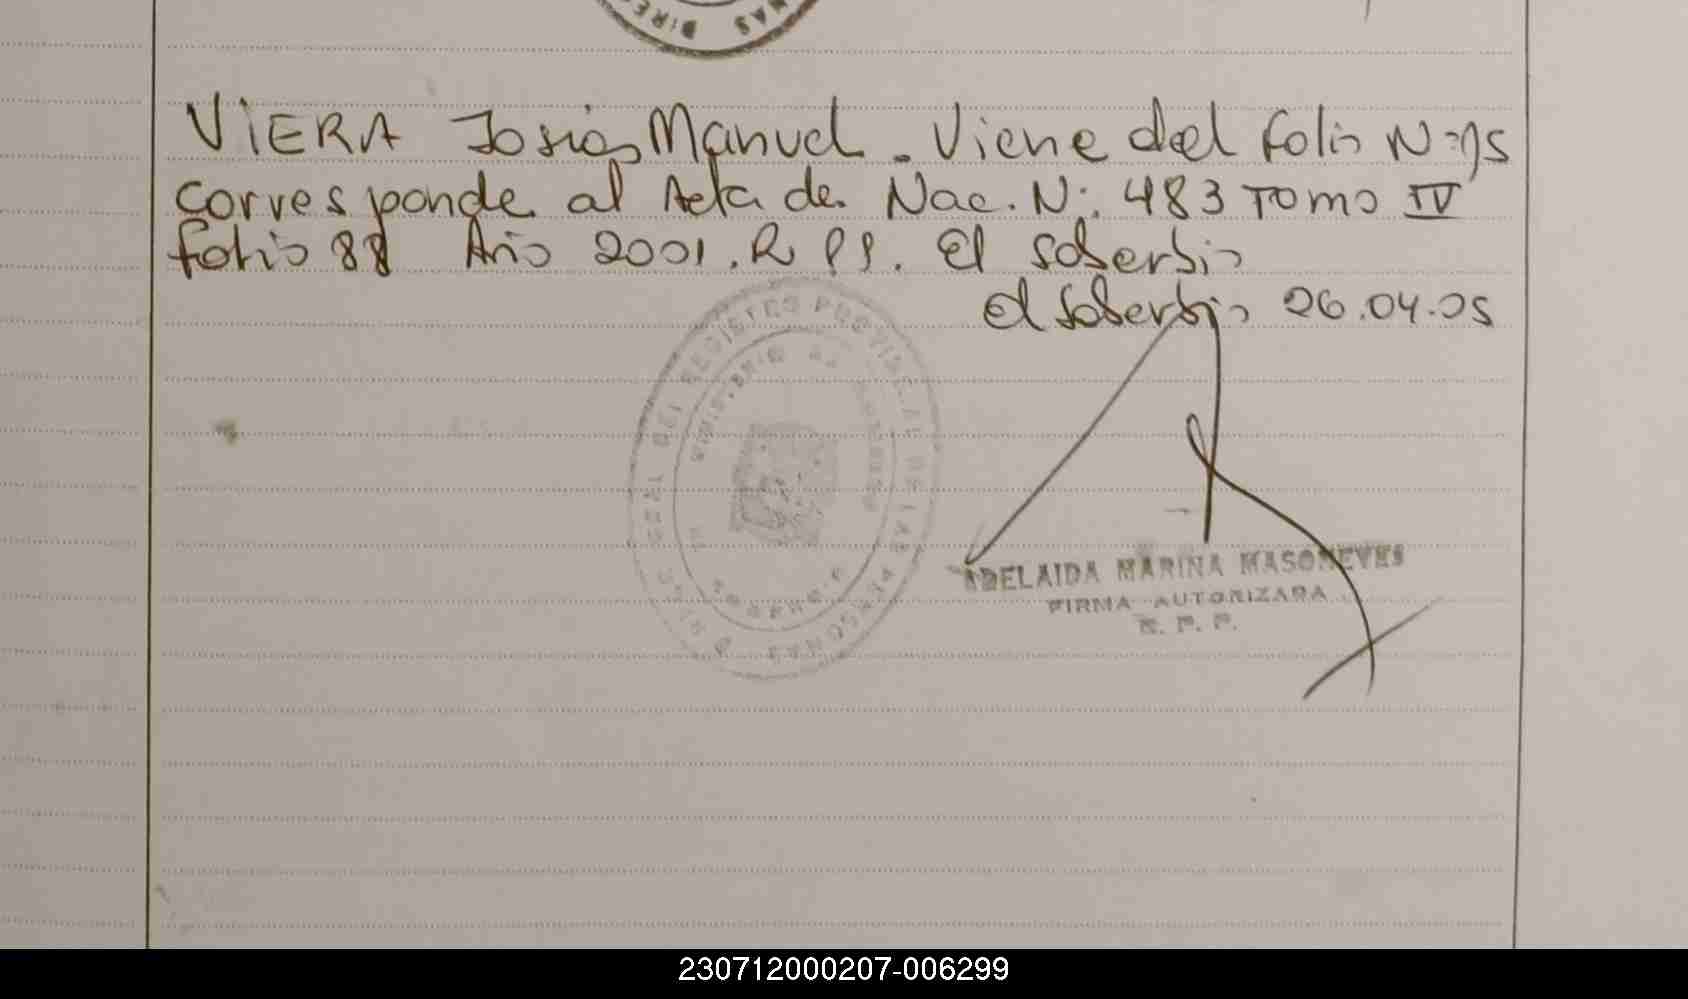 DIRE NAS
VIERA Josias Manuel. Viene del folio N:
corresponde al Acta de Nac. N: 483 Tomo IV
folio 88 Año 2001. R P P. El Soberbio
El Soberbio 26.04.05
ADELAIDA MARINA MASONEVES
FIRMA AUTORIZADA
R. P. P.
230712000207-006299